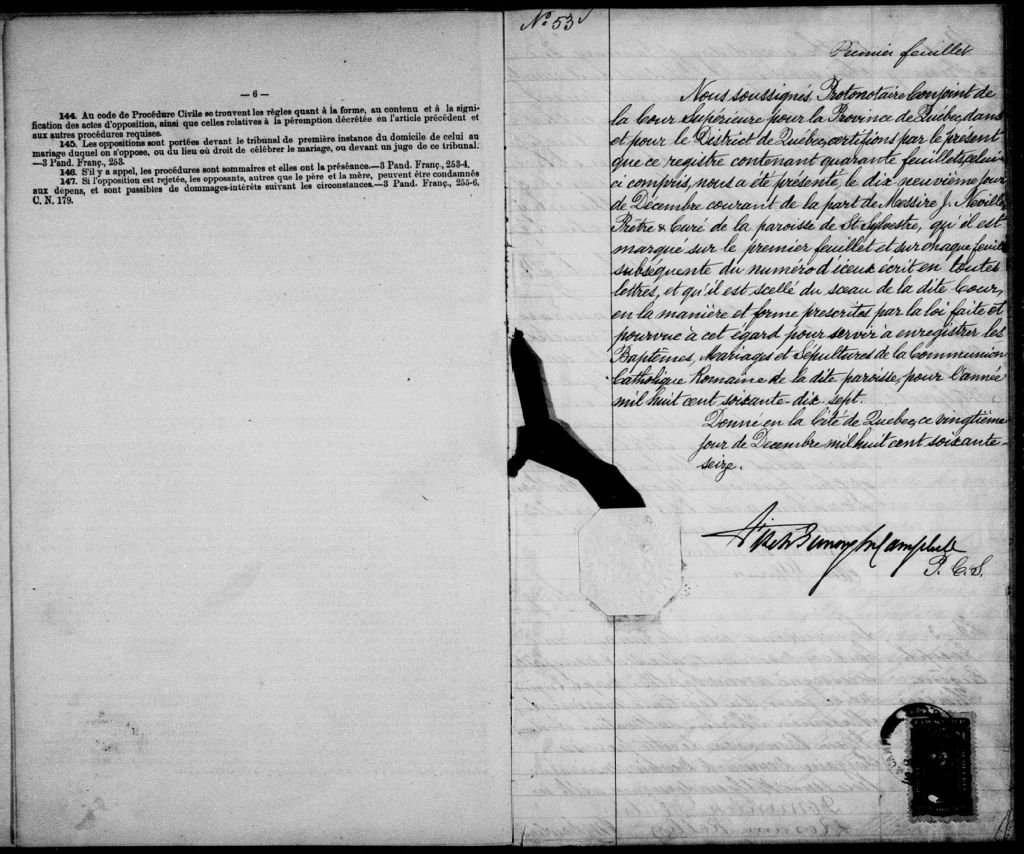 — 6 —
144. Au code de Procédure Civile se trouvent les règles quant à la forme, au contenu et à la signi-
fication des actes d'opposition, ainsi que celles relatives à la péremption décrétée en l'article précédent et
aux autres procédures requises.
145. Les oppositions sont portées devant le tribunal de première instance du domicile de celui au
mariage duquel on s'oppose, ou du lieu où droit de célébrer le mariage, ou devant un juge de ce tribunal.
—3 Pand. Franç., 253.
146. S'il y a appel, les procédures sont sommaires et elles ont la préséance.—3 Pand. Franç., 253-4.
147. Si l'opposition est rejetée, les opposants, autres que le père et la mère, peuvent être condamnés
aux dépens, et sont passibles de dommages-intérêts suivant les circonstances.—3 Pand. Franç., 255-6,
C. N. 179.
No 53
Premier feuillet
Nous soussignés, Protonotaire Conjoint de
la Cour Supérieure pour la Province de Québec, dans
et pour le District de Québec, certifions par le présent
que ce registre contenant quarante feuillets celui-
ci compris, nous a été présenté, le dix neuvième jour
de Décembre courant de la part de Messire J. Neville
Prêtre & Curé de la paroisse de St Sylvestre, qu'il est
marqué sur le premier feuillet et sur chaque feuillet
subséquente du numéro d'iceux écrit en toutes
lettres, et qu'il est scellé du sceau de la dite Cour,
en la manière et forme prescrites par la loi faite et
pourvue à cet égard pour servir à enregistrer les
Baptêmes, Mariages et Sépultures de la Communion
Catholique Romaine de la dite paroisse, pour l'année
mil huit cent soixante dix sept.
Donné en la Cité de Quebec, ce vingtième
jour de Decembre mil huit cent soixante-
seize.
Campbell
P. C. S.